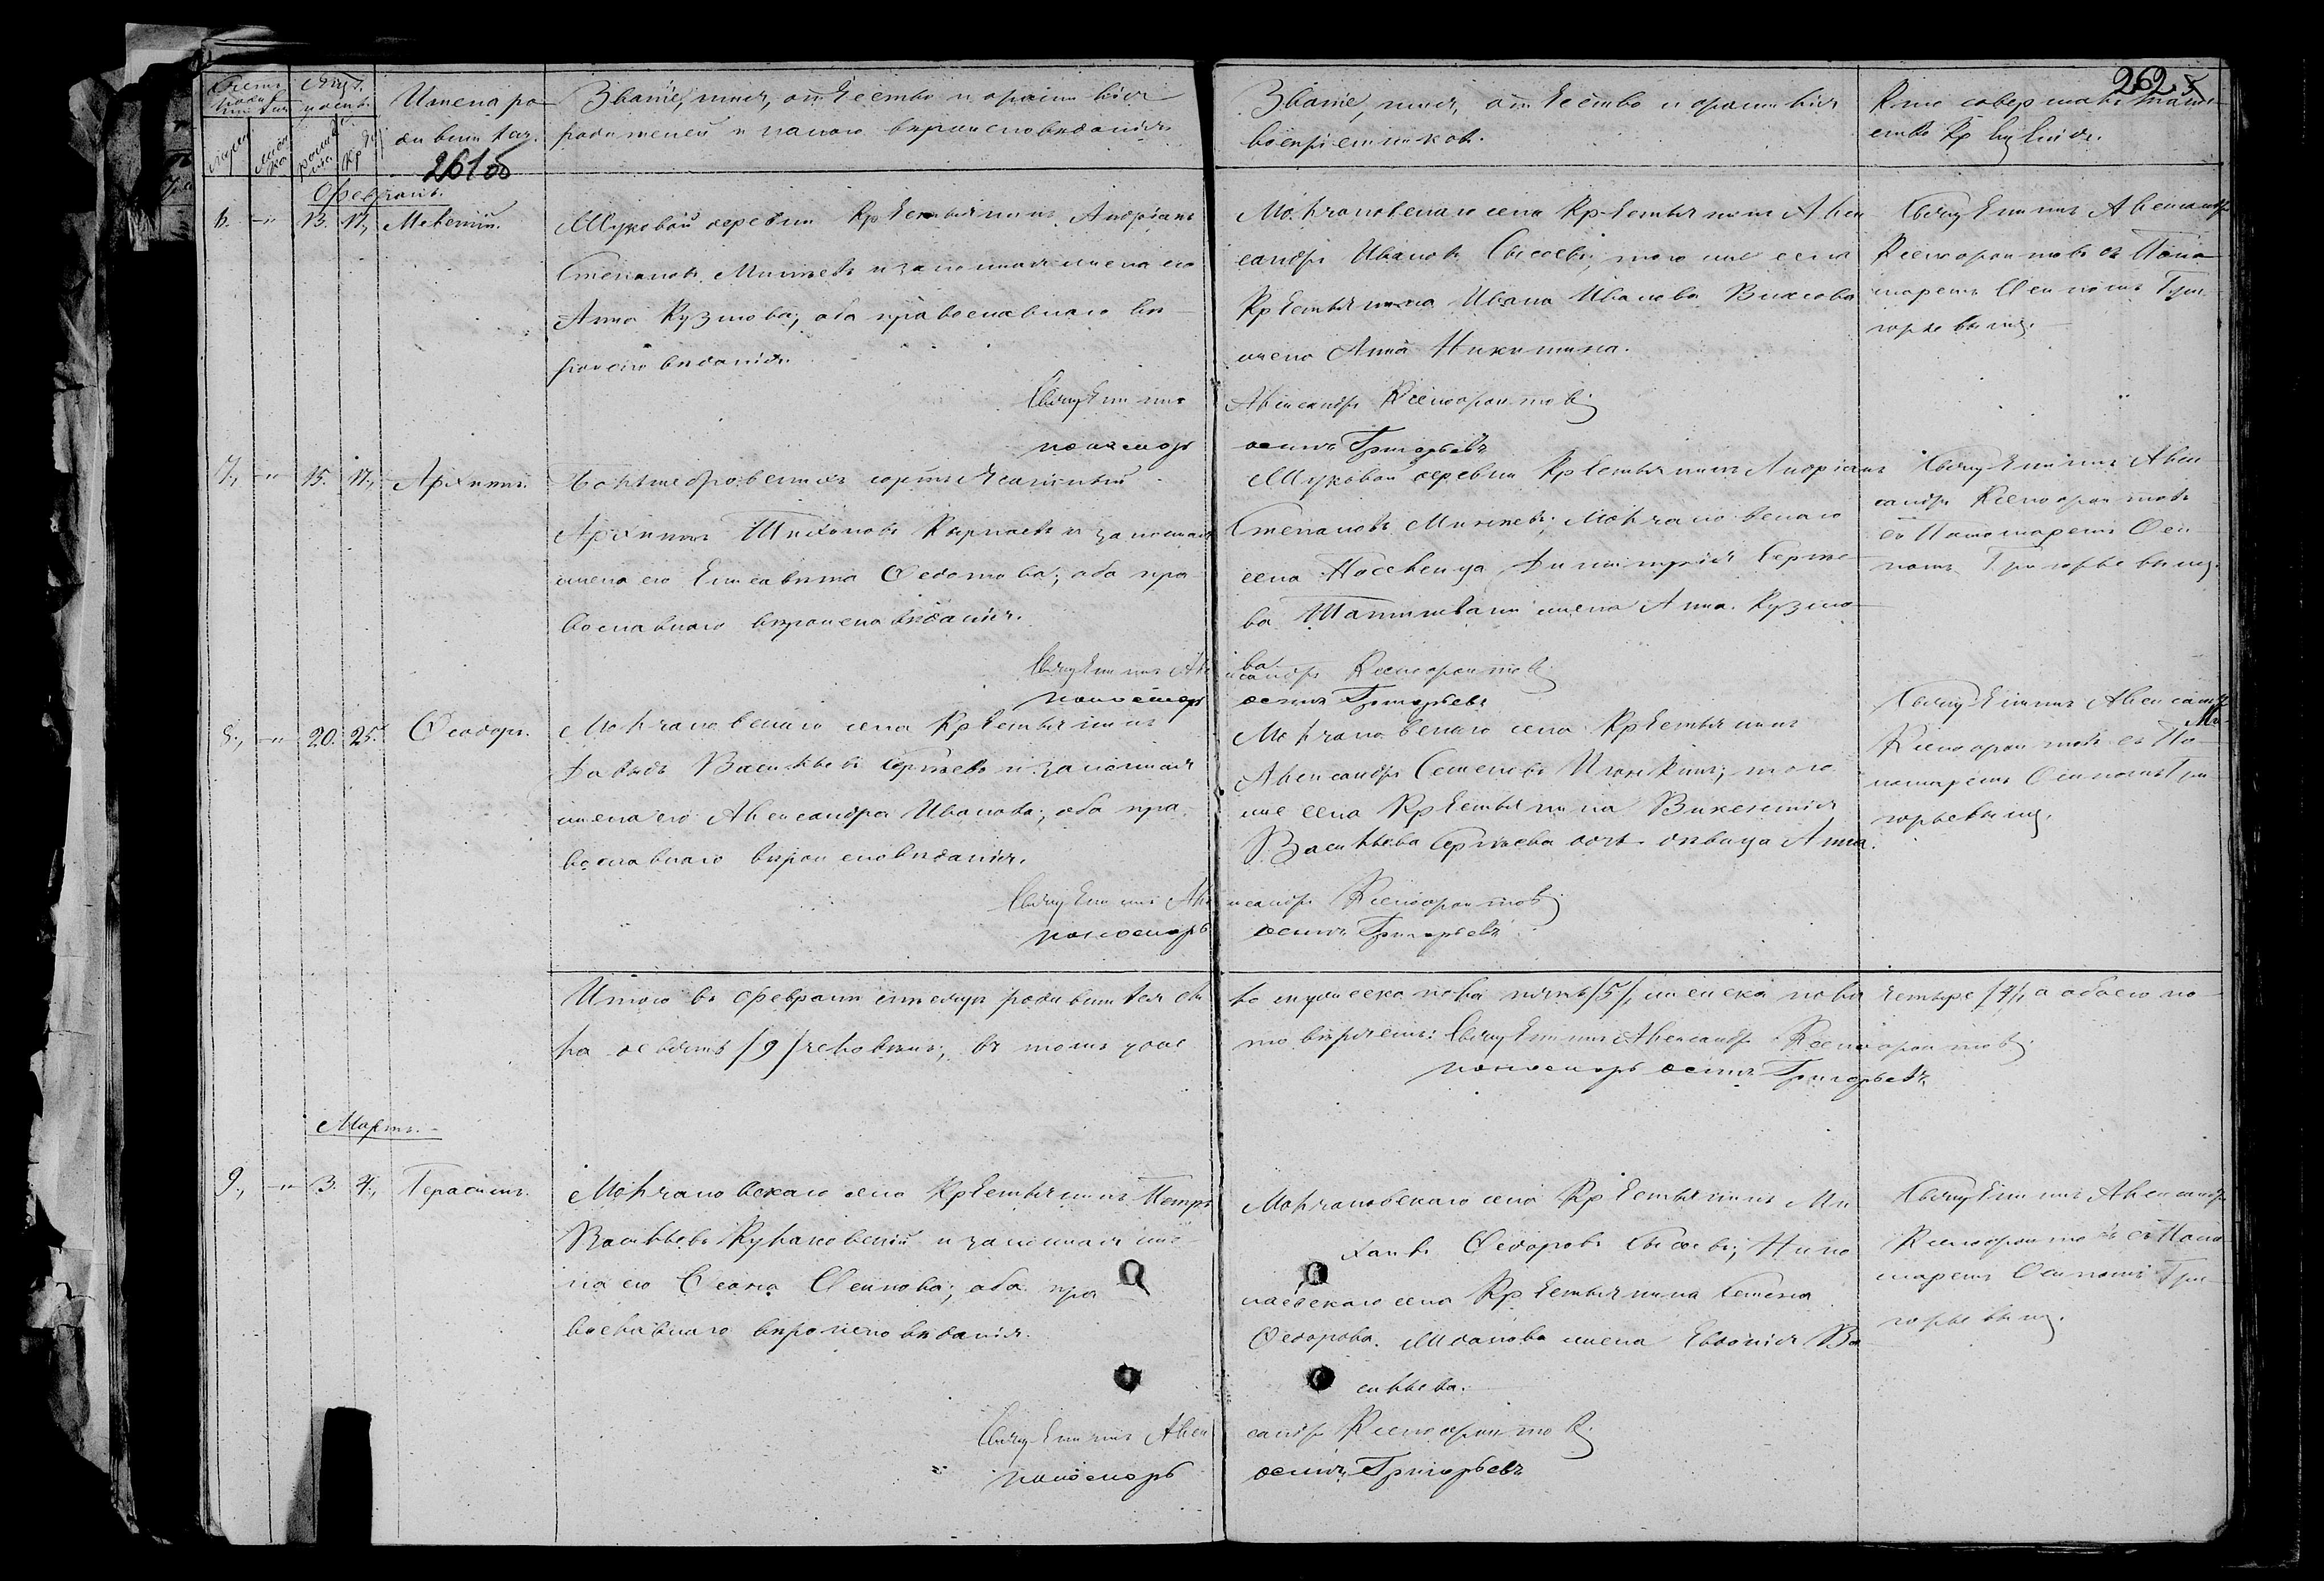 262
Имена ро-
дившихся.
Званіе, имя, отчество и фамилія
родителей и какого вѣроисповѣданія
Званіе, имя, отчество и фамилія
воспріемниковъ.
Кто совершалъ таин-
ство крещенія.
261об
Февраль.
6. -"- 13. 17., Мелетій.
Шуковой деревни крестьянинъ Андріанъ
Степановъ и законная жена его
Анна Кузмова; оба православнаго вѣ-
роисповѣданія.
Молчановскаго села крестьянинъ Алек
сандръ Ивановъ Сысоевъ; того же села
крестьянина Ивана Иванова
жена Анна Никитина.
Священникъ Александръ
Ксенофонтовъ съ Поно-
маремъ Осипомъ Гри-
горьевымъ.
Священникъ Александръ Ксенофонтовъ
пономарь осипъ Григорьевъ
7., -"- 15. 17., Архипъ.
Архипъ Тихоновъ и законная
жена его Елисавета Федотова; оба пра-
вославнаго вѣроисповѣданія.
Шуковой деревни крестьянинъ Андріанъ
Степановъ Молчановскаго
села Димитрія Сергѣе-
ва жена Анна Кузмо-
ва
Священникъ Алек-
сандръ Ксенофонтовъ
съ Пономаремъ Оси-
помъ Григорьевымъ.
Священникъ Александръ Ксенофонтовъ
пономарь осипъ Григорьевъ
8., -"- 20. 25. Ѳеодоръ.
Молчановскаго села крестьянинъ
Давидъ Васильевъ Сергѣевъ и законная
жена его Александра Иванова; оба пра-
вославнаго вѣроисповѣданія.
Молчановскаго села крестьянинъ
Александръ Семеновъ того
же села крестьянина Викентія
Васильева Сергѣева дочь дѣвица Анна.
Священникъ Александръ
Ксенофонтовъ съ По-
номаремъ Осипомъ Гри-
горьевымъ.
Священникъ Александръ Ксенофонтовъ
пономарь осипъ Григорьевъ
Итого въ февралѣ мѣсяцѣ родившихся бы
ло мужеска пола пять /5/, женска пола четыре /4/, а обоего по-
ла девять /9/ человѣкъ; въ томъ удо-
стовѣряемъ: Священникъ Александръ Ксенофонтовъ
пономарь осипъ Григорьевъ
Мартъ.
9., -"- 3. 4., Герасимъ.
Молчановскаго села крестьянинъ Петръ
Васильевъ и законная же-
на его Осипова; оба пра
вославнаго вѣроисповѣданія.
Молчановскаго села крестьянинъ Ми
хаилъ Ѳедоровъ Сысоевъ; Нико
лаевскаго села крестьянина Семена
Ѳедорова жена Евдокія Ва
сильева.
Священникъ Александръ
Ксенофонтовъ съ Поно
маремъ Осипомъ Гри-
горьевымъ.
Священникъ Александръ Ксенофонтовъ
пономарь осипъ Григорьевъ